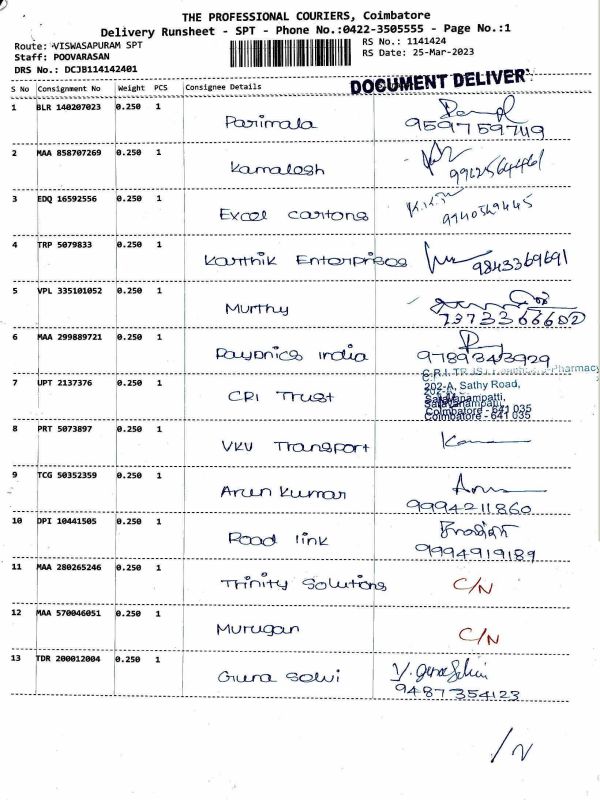 THE PROFESSIONAL COURIERS, Coimbatore
Delivery Runsheet - SPT - Phone No.:0422-3505555 - Page No.:1
Route: VISWASAPURAM SPT
RS No.: 1141424
Staff: POOVARASAN
RS Date: 25-Mar-2023
DRS No.: DCJB114142401
DOCUMENT DELIVER
S No Consignment No Weight PCS Consignee Details
1 BLR 140207023 0.250 1 Parimala
9597759749
2 MAA 858707269 0.250 1 Kamalesh
3 EDQ 16592556 0.250 1 Excel cartons
4 TRP 5079833 0.250 1 Karthik Enterprises 9843369691
5 VPL 335101052 0.250 1 Murthy
7373366602
6 MAA 299889721 0.250 1 Rayonics india
9789343929
7 UPT 2137376 0.250 1 CRI Trust
Pharmacy
202-A, Sathy Road,
Saravanampatti,
Coimbatore - 641 035
8 PRT 5073897 0.250 1 VKV Transport
9 TCG 50352359 0.250 1 Arun kumar
9994211860
10 DPI 10441505 0.250 1 Road link
9994919189
11 MAA 280265246 0.250 1 Trinity Solutions C/N
12 MAA 570046051 0.250 1 Murugan C/N
13 TDR 200012004 0.250 1 Guna selvi
9487354123